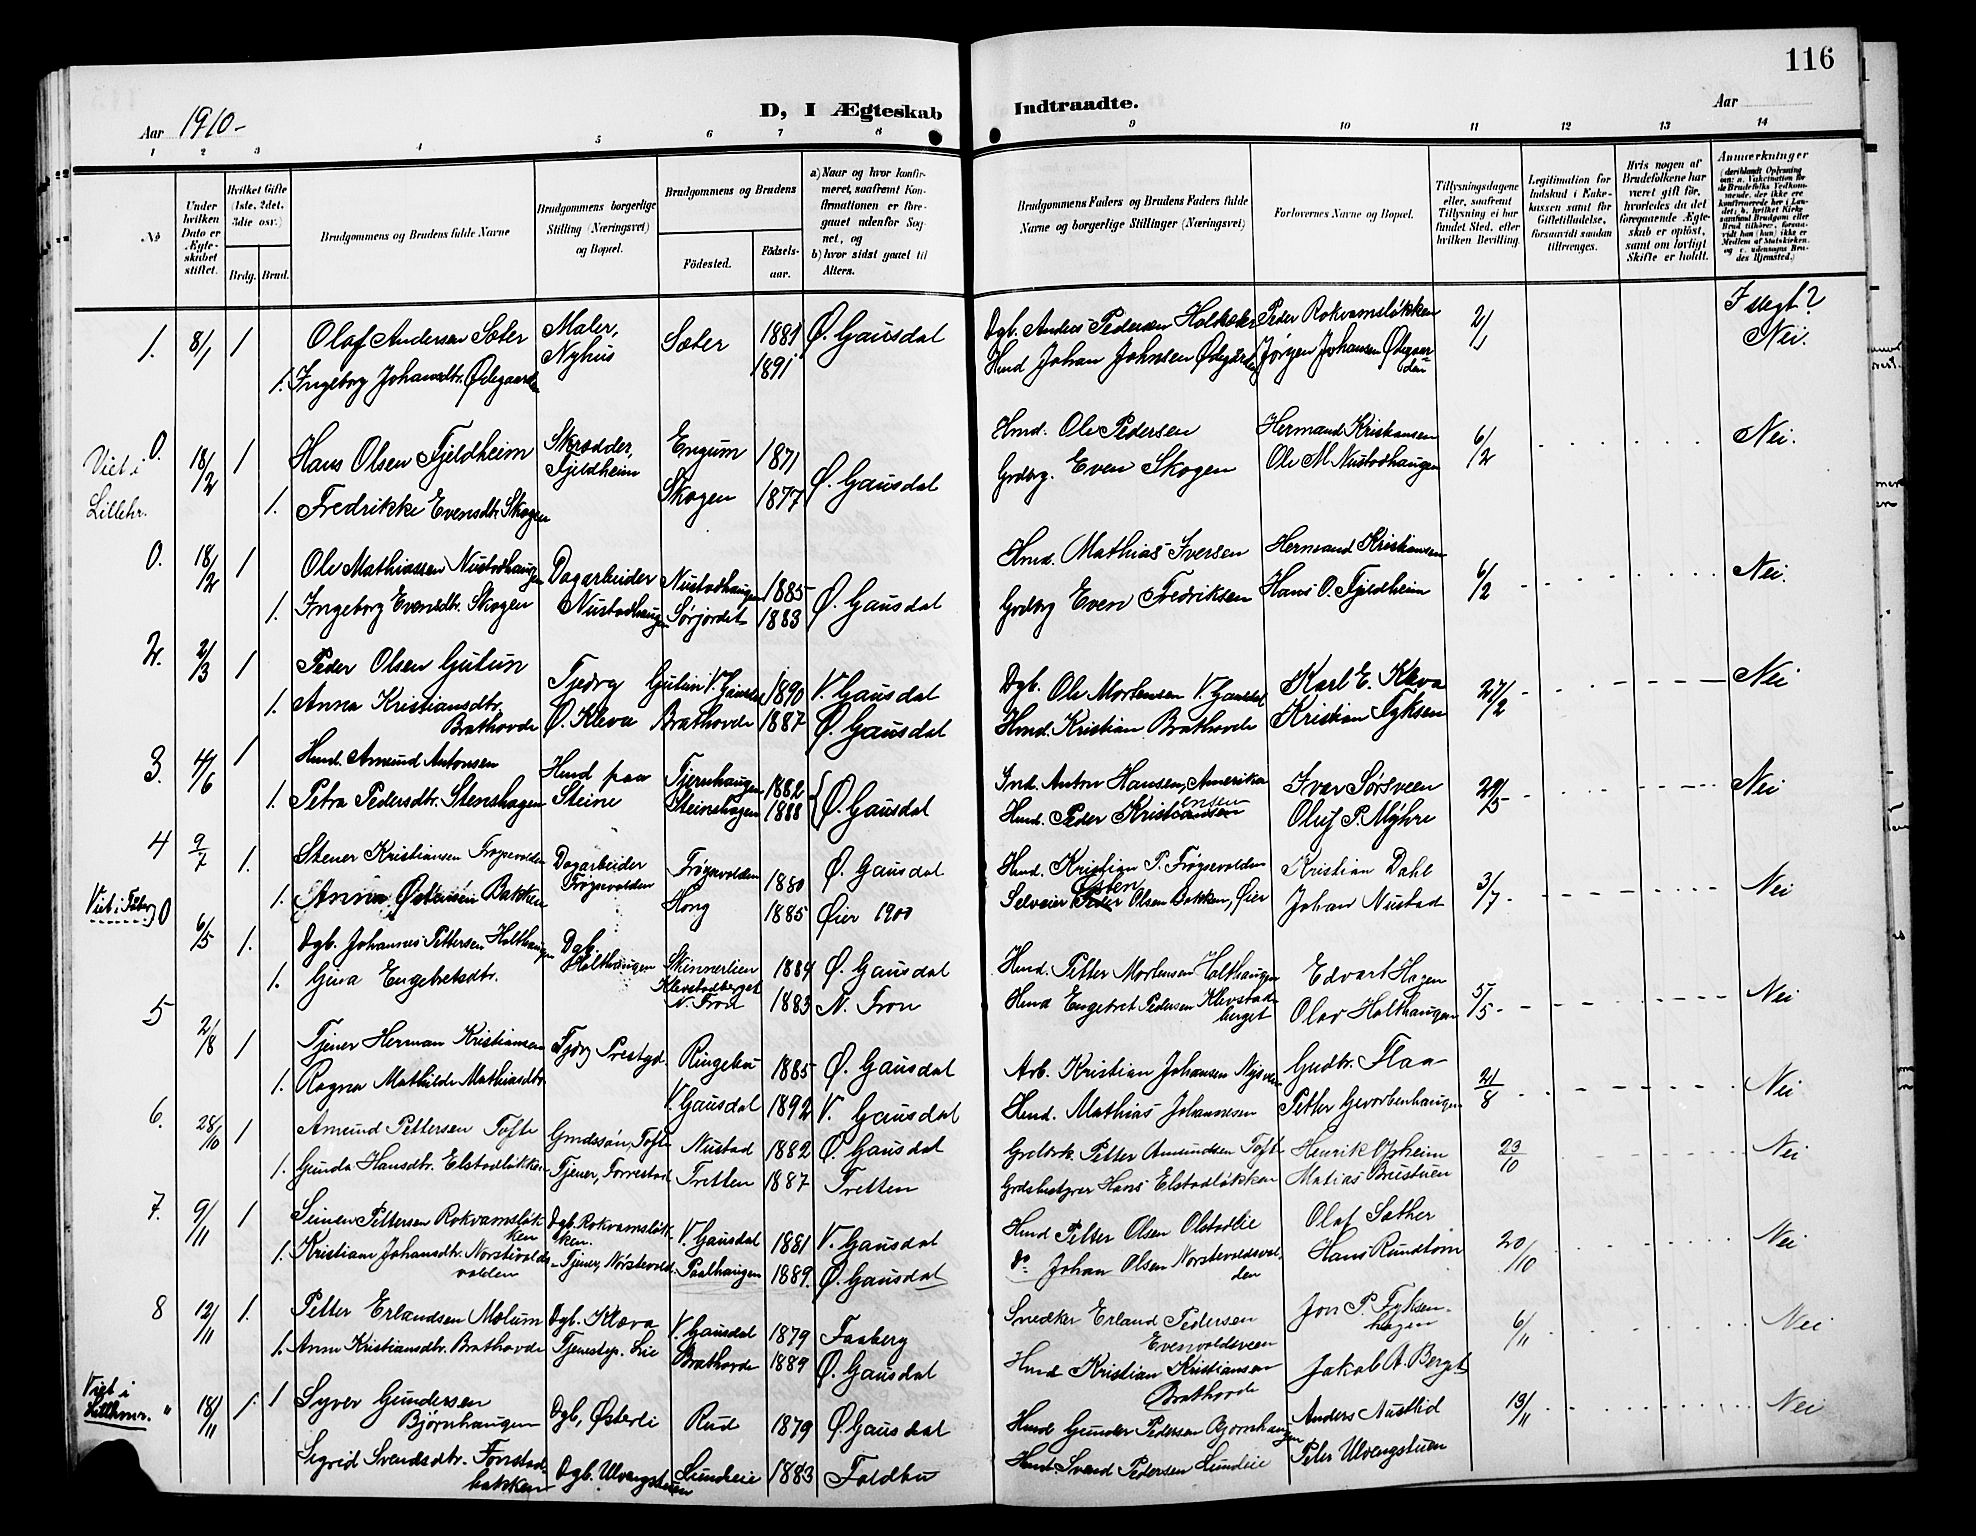 116
Aar 1910-
D, I Ægteskab Indtraadte.
Aar
1 2 3 4 5 6 7 8 9 10 11 12 13 14
No
Under hvilken Dato er Ægteskabet stiftet.
Hvilket Gifte (1ste, 2det, 3die osv.)
Brdg. Brud.
Brudgommens og Brudens fulde Navne
Brudgommens borgerlige Stilling (Næringsvei) og Bopæl.
Brudgommens og Brudens
Födested.
Födselsaar.
a) Naar og hvor konfirmeret, saafremt Konfirmationen er foregaaet udenfor Sognet, og
b) hvor sidst gaaet til Alters.
Brudgommens Faders og Brudens Faders fulde Navne og borgerlige Stillinger (Næringsvei)
Forlovernes Navne og Bopæl.
Tillysningsdagene eller, saafremt Tillysning ei har fundet Sted, efter hvilken Bevilling.
Legitimation for Indskud i Enkekassen samt for Giftetilladelse, forsaavidt saadan tiltrænges.
Hvis nogen af Brudefolkene har været gift før, hvorledes da det foregaaende Ægteskab er opløst, samt om lovligt Skifte er holdt.
Anmærkninger
I slegt?
1. 8/1 1 Olaf Andersen Sæter Maler, Nyhus Sæter 1881 Ø. Gausdal Dgb. Anders Pedersen Peder Rokvamsløkken 2/1 Nei.
1. Ingeborg Johansdtr. Ødegaarden 1891 Hmd Johan Johnsen Ødegården Jørgen Johansen Ødegaarden
Viet i Lillehr. 0. 18/2 1 Hans Olsen Fjeldheim Skrædder, Fjeldheim Engum 1871 Ø. Gausdal Hmd. Ole Pedersen Hermand Kristiansen 6/2 Nei.
1. Fredrikke Evensdtr. Skogen Skogen 1877 Grdbrg. Even Skogen Ole M. Nustadhaugen
0. 18/2 1 Ole Mathiassen Nustadhaugen Dagarbeider Nustadhaugen 1885 Ø. Gausdal Hmd. Mathias Iversen Hermand Kristiansen 6/2 Nei.
1. Ingeborg Evensdtr. Skogen Nustadhaugen Sørjordet 1883 Grdbrg Even Fredriksen Hans O. Fjeldheim
2. 2/3 1 Peder Olsen Gutun Tjedrg Gutun V. Gausdal 1890 V. Gausdal Dgb. Ole Mortensen V. Gausdal Karl E. Kleva 27/2 Nei
1. Anna Kristiansdtr. Brathovde Ø. Kleva Brathovde 1887 Ø. Gausdal Hmd. Kristian Brathovde Kristian Fyksen
3. 4/6 1 Hmd. Amund Antonsen Hmd paa Steine Tjernhaugen 1882 Ø. Gausdal Ind. Anton Hansen, Amerika Iver Sørsveen 29/5 Nei
1. Petra Pedersdtr. Stenshagen Steinshagen 1888 Hmd. Peder Kristiansen Oluf P. Myhre
4 9/7 1. Stener Kristiansen Frøysevolden Dagarbeider Frøysevolden Frøysevolden 1880 Ø. Gausdal Hmd. Kristian P. Frøysevolden Kristian Dahl 3/7 Nei
1. Anna Østensen Bakken Hong 1885 Øier 1900 Selveier Østen Olsen Bakken, Øier Johan Nustad
0 6/5 1. Dgb. Johannes Pettersen Holthaugen Dgb. Holthaugen Skinnerlien 1884 Ø. Gausdal Hmd. Petter Mortensen Holthaugen Edvart Hagen Nei
1. Gina Engebretsdtr. Klevstadberget N. Fron 1883 N. Fron Hmd Engebret Pedersen Klevstadberget Olav Holthaugen
5 2/8 1 Tjener Herman Kristiansen Tjdrg Prestgd. Ringebu 1885 Ø. Gausdal Arb. Kristian Johansen Gudbr. Flaa 21/8 Nei
1. Ragna Mathilde Mathiasdtr. V. Gausdal 1892 V. Gausdal Hmd. Mathias Johannesen Petter
6. 28/10 1 Amund Pettersen Tofte Gmdssøn, Tofte Nustad 1882 Ø. Gausdal Grdbrk. Petter Amundsen Tofte Henrik Opheim 23/10 Nei
1. Gunda Hansdtr. Elstadløkken Tjener, Forrestad Tretten 1887 Tretten Grdsbestyrer Hans Elstadløkken Matias Brustuen
7. 9/11 1 Simen Pettersen Rokvamsløkken Dgb. Rokvamsløkken. V. Gausdal 1881 V. Gausdal Hmd Petter Olsen Olstadlie Olaf Sæther 20/10 Nei
1. Kristiane Johansdtr. Norstevoldsvolden Tjener, Nørstevold. Paalhaugen 1889. Ø. Gausdal do Johan Olsen Norstevoldsvolden Hans Rundtom
8 12/11 1. Petter Erlandsen Mælum Dgb. Kleva V. Gausdal 1879 Faaberg Snedker Erland Pedersen Evenvoldsveen Jon P. Fyksenhagen 6/11 Nei
1. Anne Kristiansdtr. Brathovde Tjenestep. Lie Brathovde 1889 Ø. Gausdal Hmd Kristian Kristiansen Brathovde Jakob A. Berget
Viet i Lillhmr. " 18/11 1 1 Syver Gundersen Bjørnhaugen Dgb, Østerli Rud 1879 Ø. Gausdal Hmd Gunder Pedersen Bjørnhaugen Anders Nustlid 13/11 Nei
Sigrid Svendsdtr. Fonstadbakken Dgb. Ulvengstuen Lundeie 1883 Foldbu Hmd Svend Pedersen Lundeie Peter Ulvengstuen